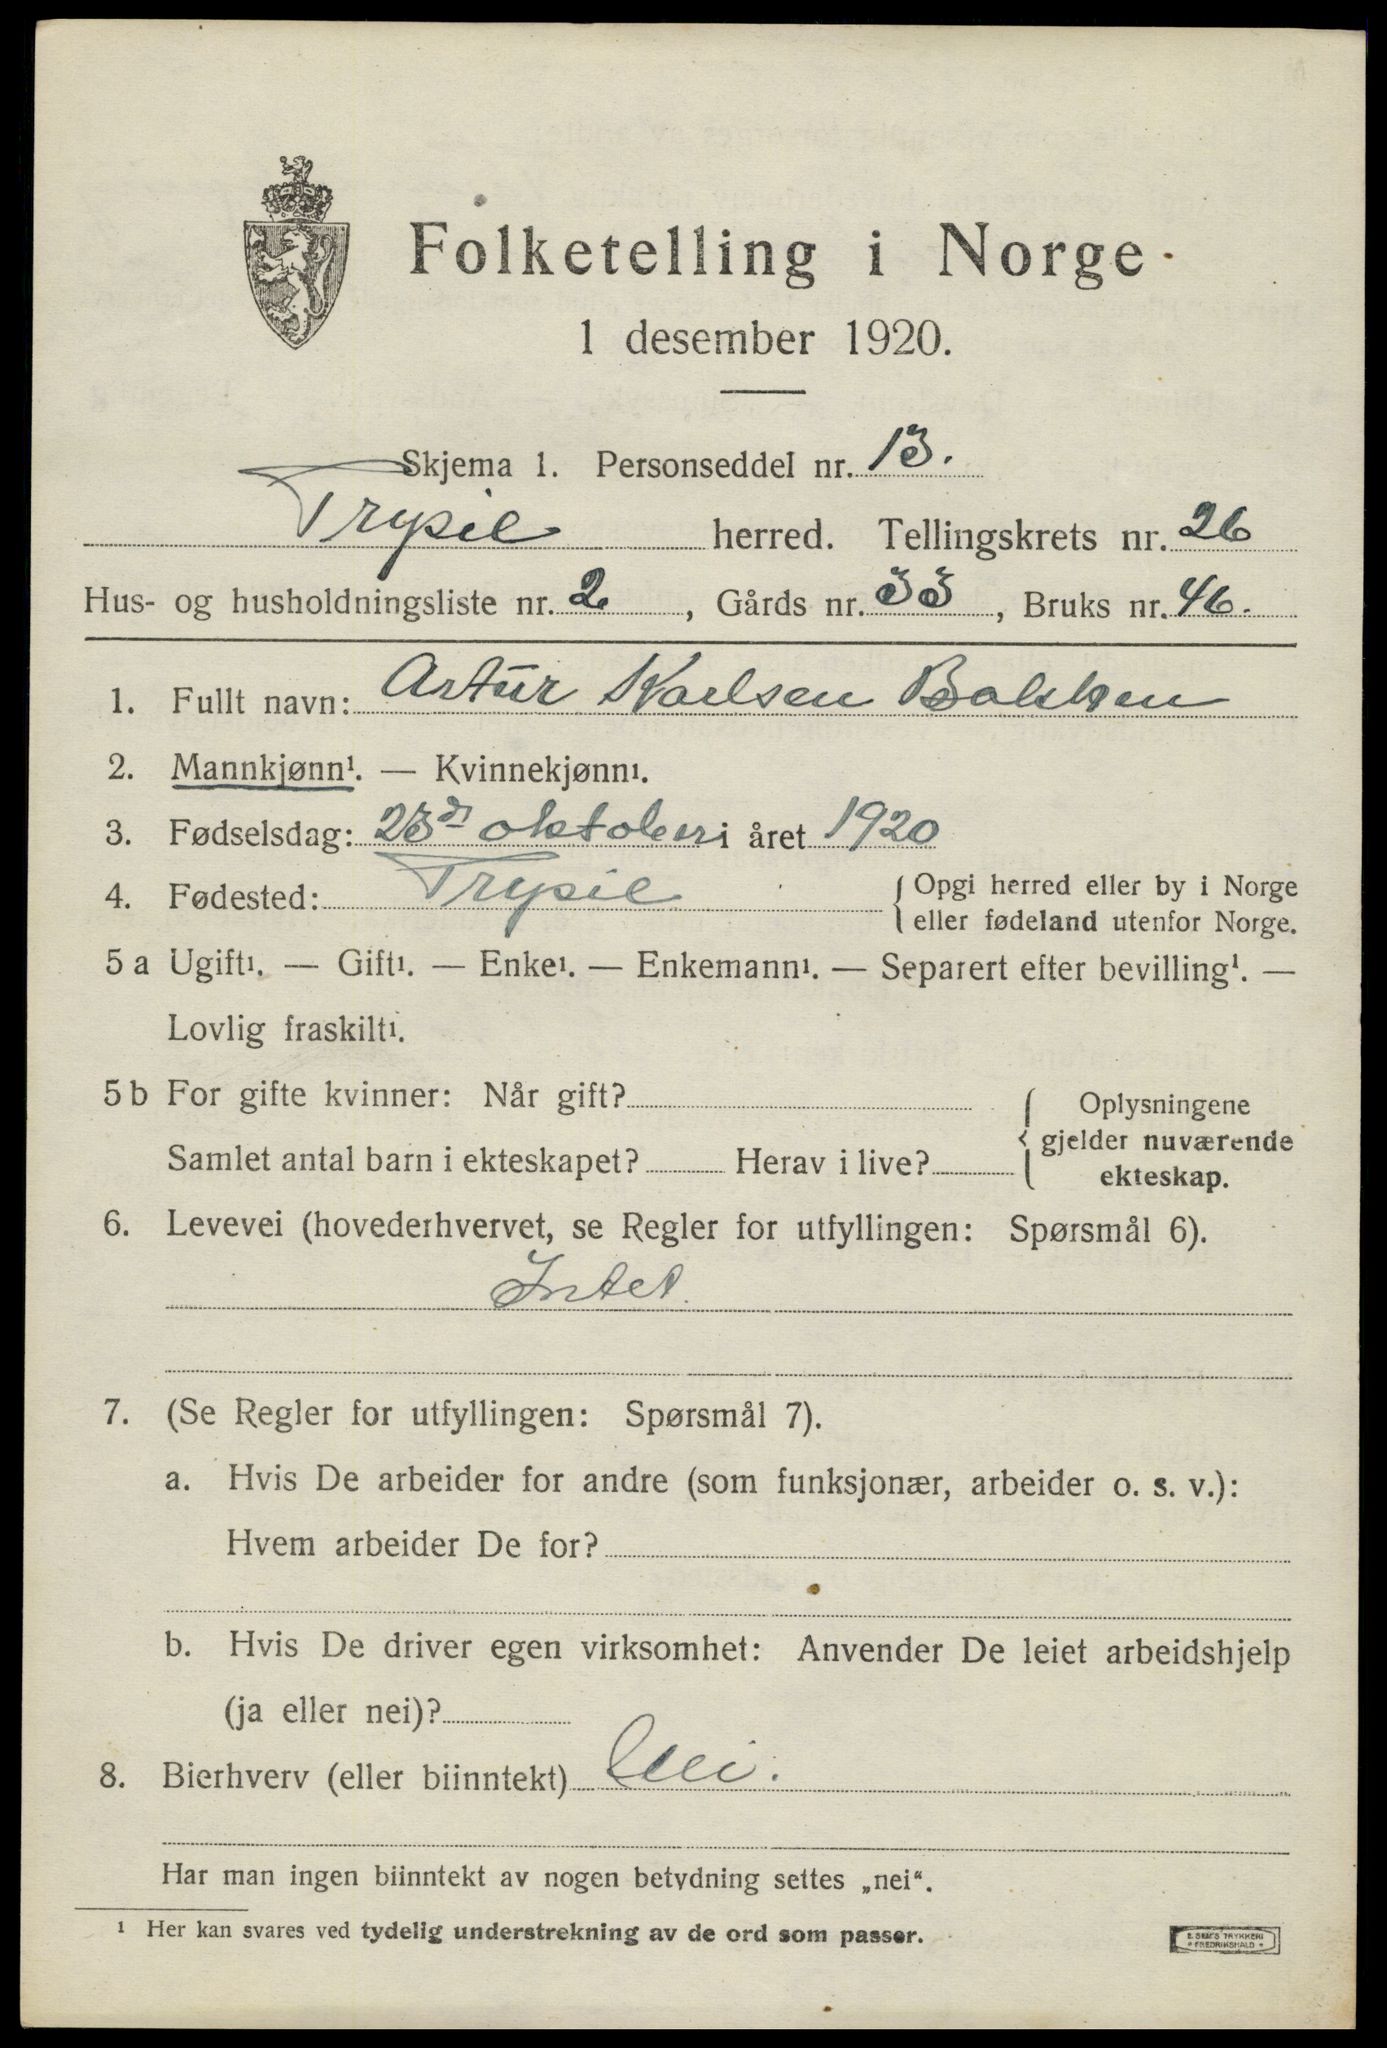 Folketelling i Norge
1 desember 1920.
Skjema 1. Personseddel nr. 13.
Trysil herred. Tellingskrets nr. 26
Hus- og husholdningsliste nr. 2, Gårds nr. 33, Bruks nr. 46.
1. Fullt navn: Artur Karlsen
2. Mannkjønn¹. — Kvinnekjønn¹.
3. Fødselsdag: 23d oktober i året 1920
4. Fødested: Trysil { Opgi herred eller by i Norge
eller fødeland utenfor Norge.
5a Ugift¹. — Gift¹. — Enke¹. — Enkemann¹. — Separert efter bevilling¹. —
Lovlig fraskilt¹.
5b For gifte kvinner: Når gift? { Oplysningene
gjelder nuværende
Samlet antal barn i ekteskapet? Herav i live?
ekteskap.
6. Levevei (hovederhvervet, se Regler for utfyllingen: Spørsmål 6).
Intet.
7. (Se Regler for utfyllingen: Spørsmål 7).
a. Hvis De arbeider for andre (som funksjonær, arbeider o. s. v.):
Hvem arbeider De for?
b. Hvis De driver egen virksomhet: Anvender De leiet arbeidshjelp
(ja eller nei)?
8. Bierhverv (eller biinntekt) Nei.
Har man ingen biinntekt av nogen betydning settes „nei“.
¹ Her kan svares ved tydelig understrekning av de ord som passer.
E. SEM'S TRYKKERI
* FREDRIKSHALD *